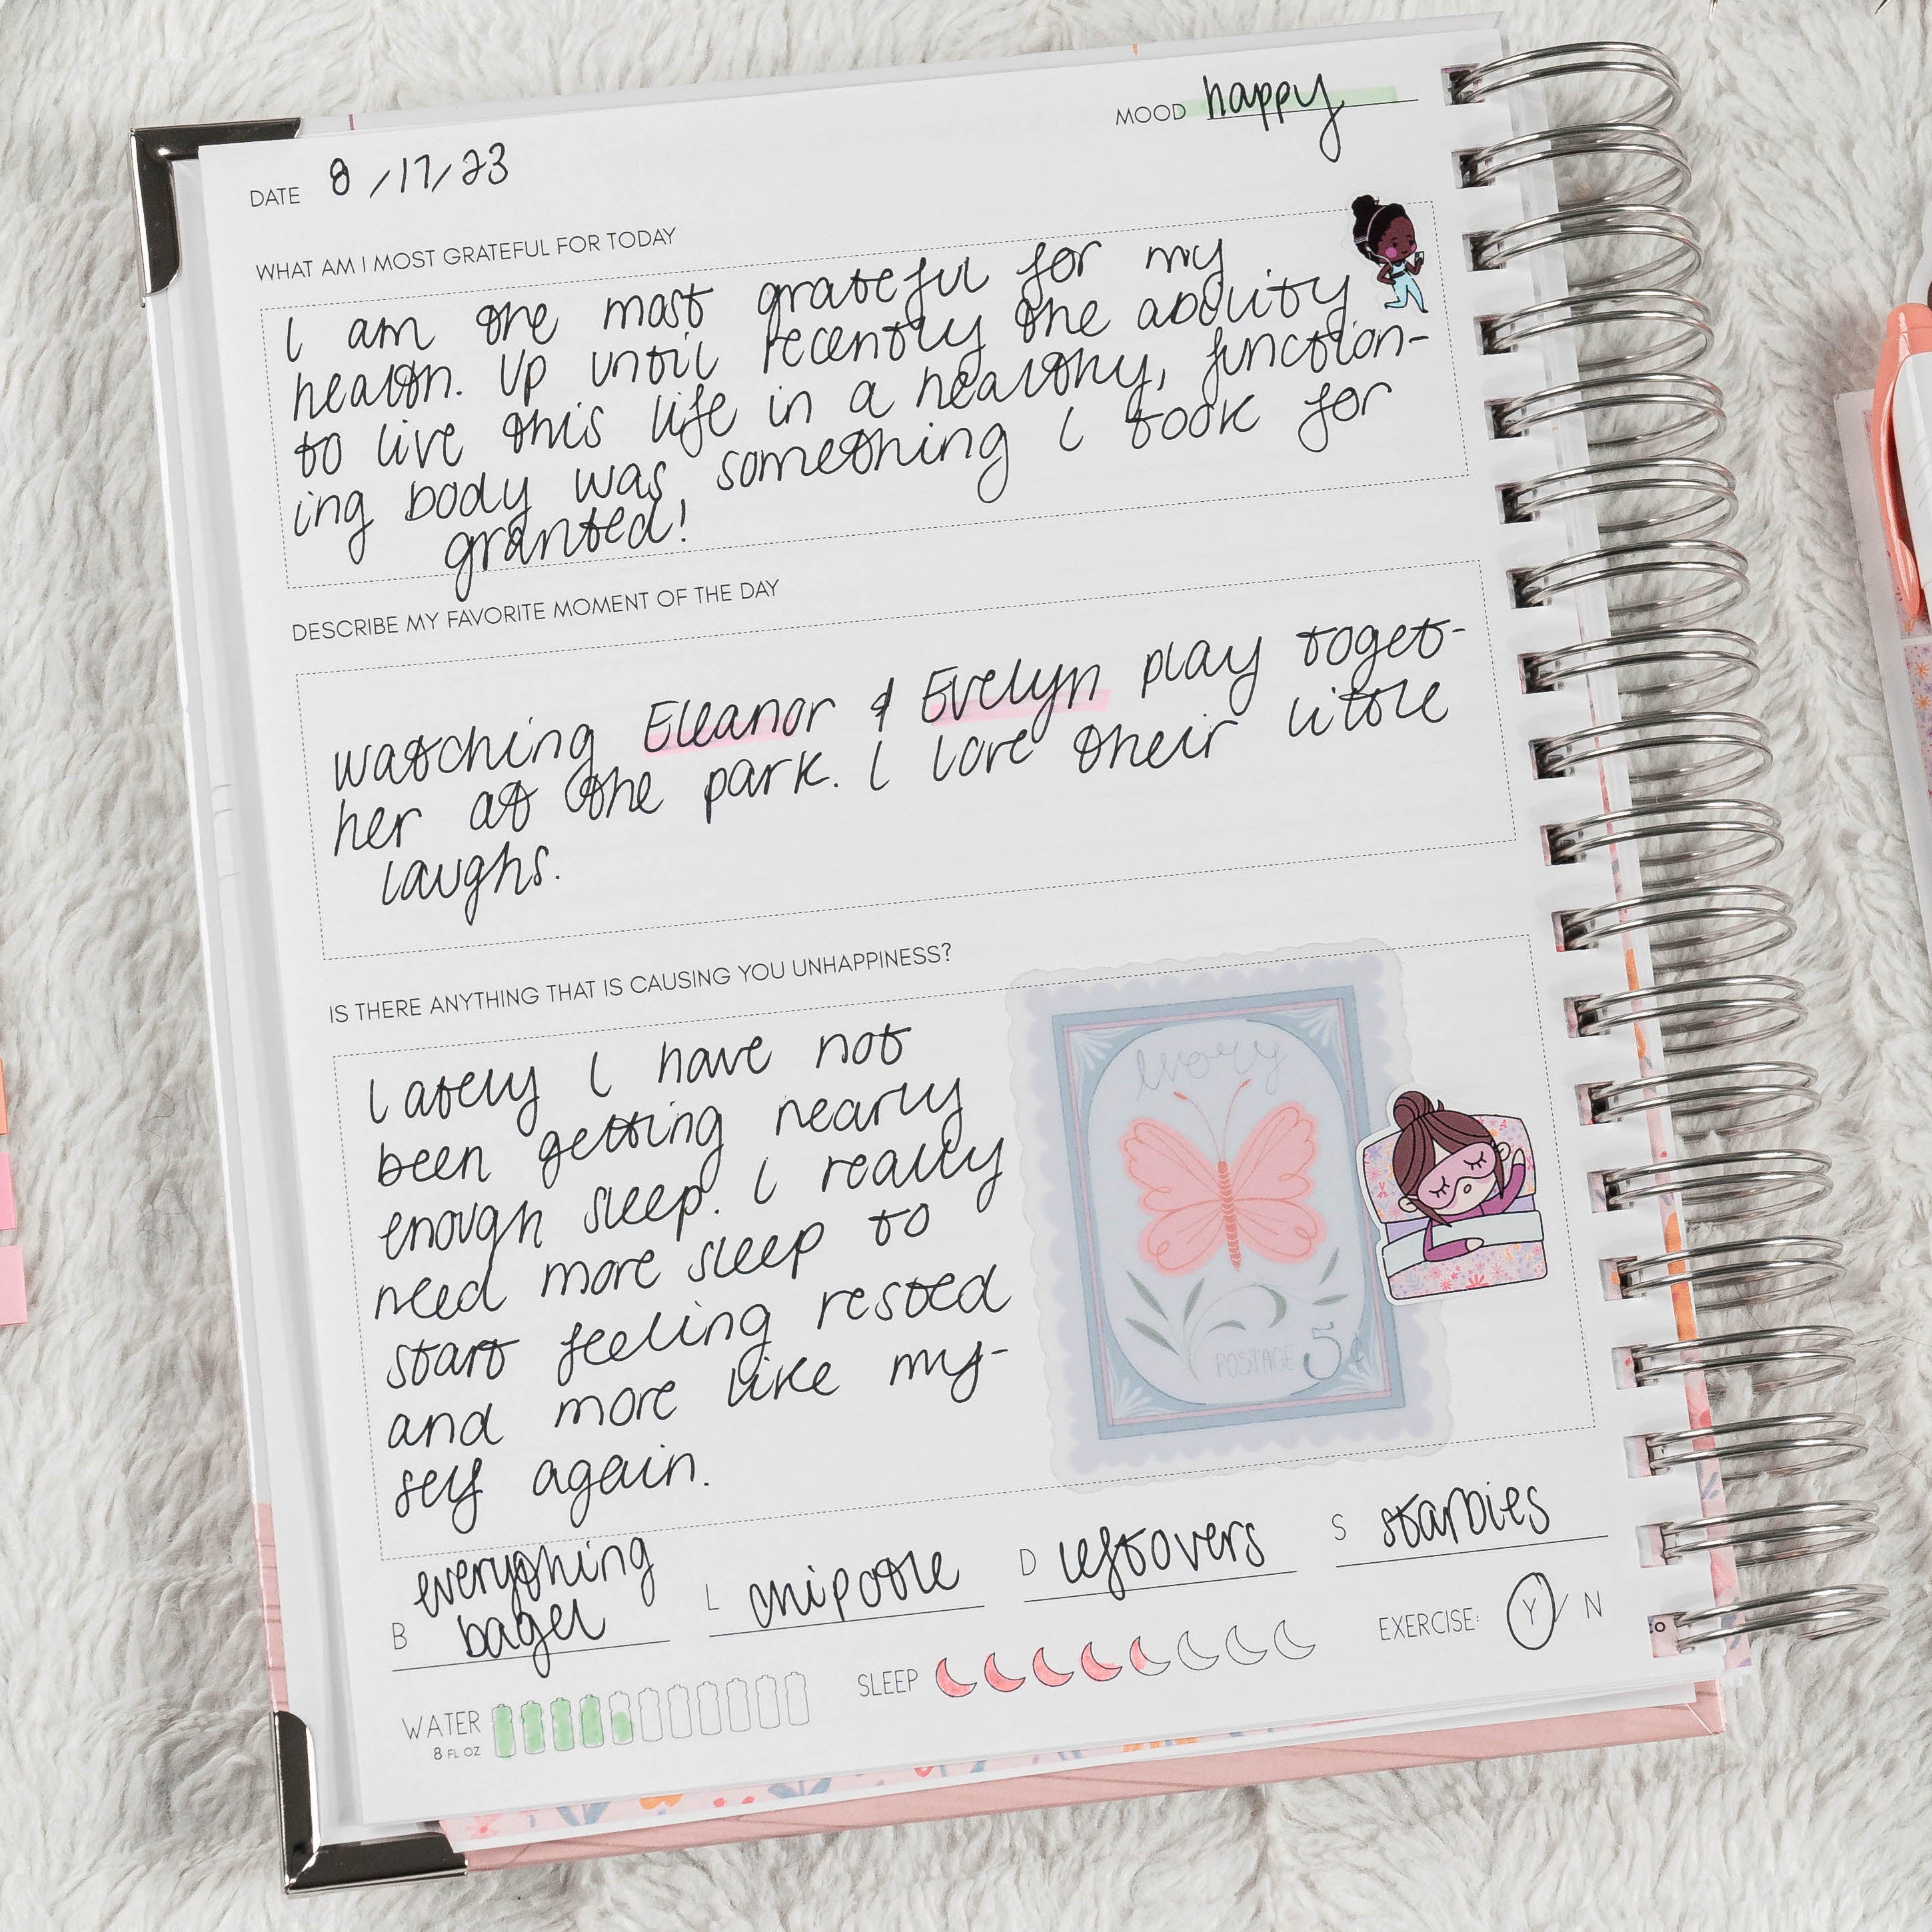 MOOD happy
DATE 8/17/23
WHAT AM I MOST GRATEFUL FOR TODAY
I am the most grateful for my
health. Up until recently the ability
to live this life in a healthy, function-
ing body was something I took for
granted!
DESCRIBE MY FAVORITE MOMENT OF THE DAY
watching Eleanor & Evelyn play toget-
her at the park. I love their little
laughs.
IS THERE ANYTHING THAT IS CAUSING YOU UNHAPPINESS?
lately I have not
been getting nearly
enough sleep. I really
need more sleep to
start feeling rested
and more like my-
self again.
POSTAGE 5¢
B everything
bagel
L chipotle
D leftovers
S starbies
WATER
8 FL OZ
SLEEP
EXERCISE: Y / N